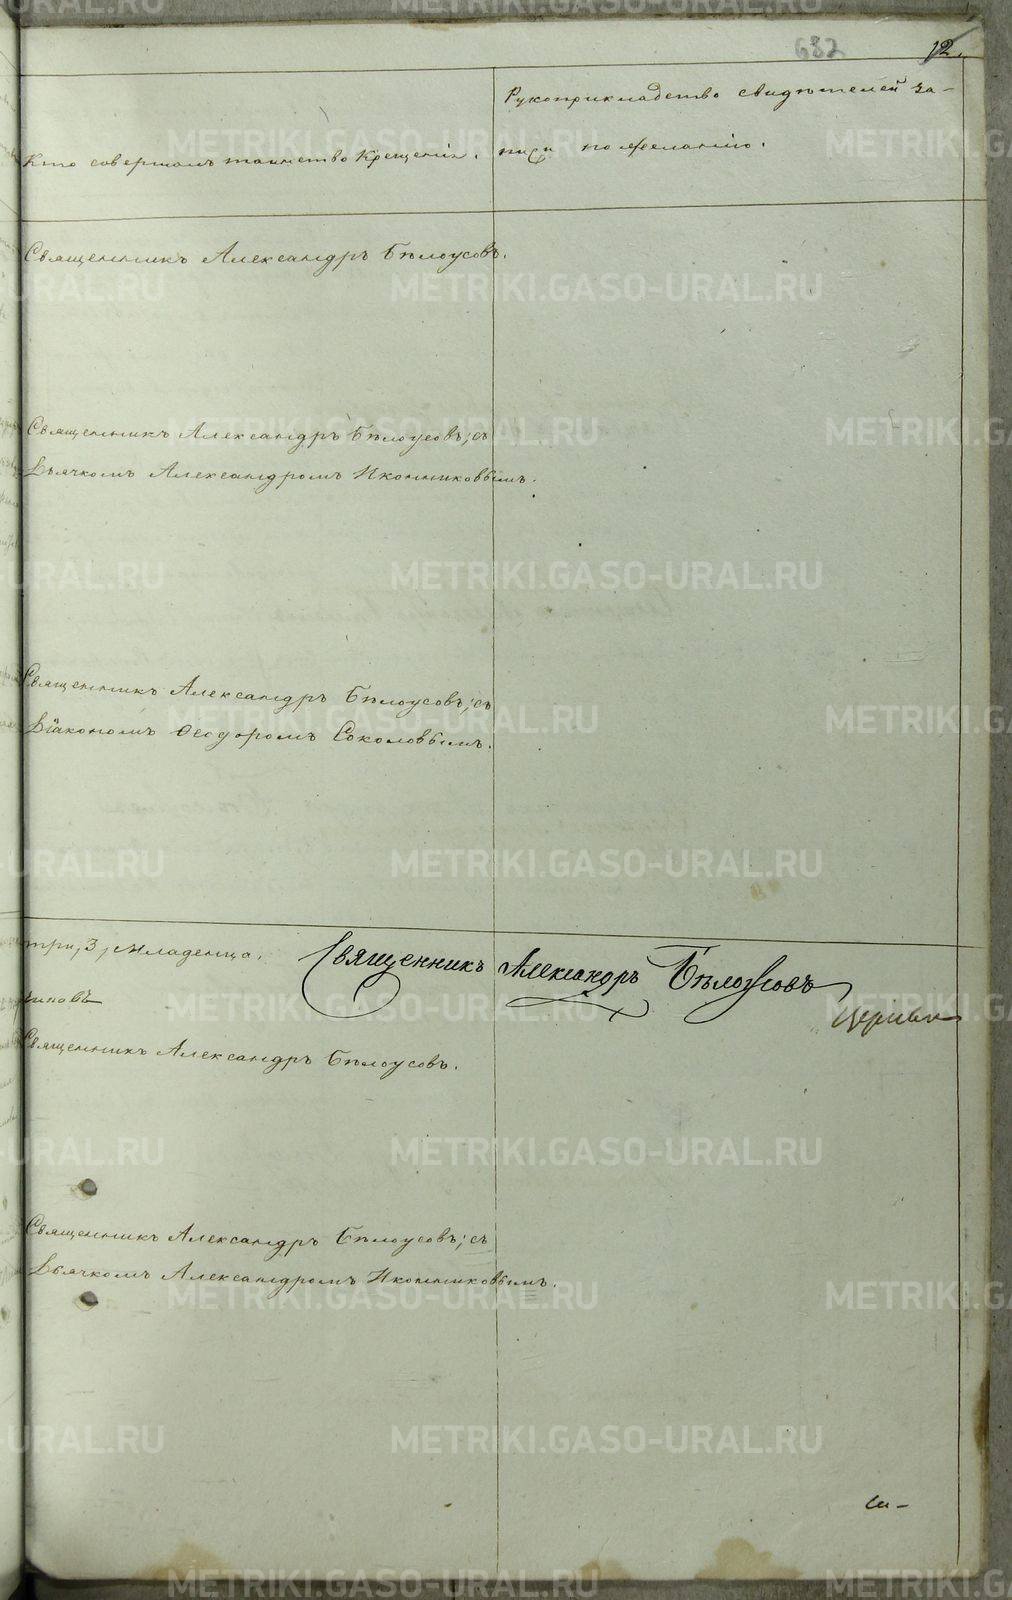 682
12.
Рукоприкладство свидѣтелей за-
Кто совершалъ таинство Крещенія.
писи по желанію.
Священникъ Александръ Бѣлоусовъ.
Священникъ Александръ Бѣлоусовъ; съ
Дьячкомъ Александромъ Иконниковымъ.
Священникъ Александръ Бѣлоусовъ; съ
Діакономъ Ѳеодоромъ Соколовымъ.
три, 3, младенца. Священникъ Александръ Бѣлоусовъ
Священникъ Александръ Бѣлоусовъ.
Священникъ Александръ Бѣлоусовъ; съ
Дьячкомъ Александромъ Иконниковымъ.
METRIKI.GASO-URAL.RU